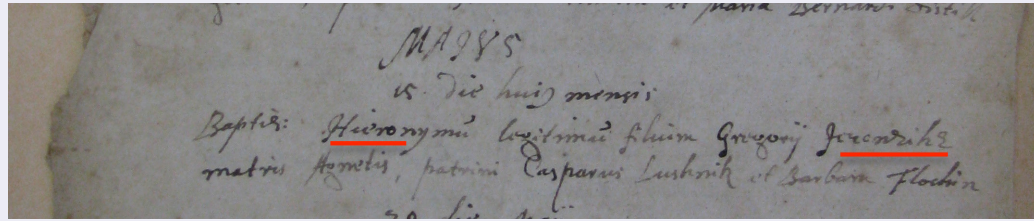 et Maria Bernardi
MAIVS
15 die huiꝯ mensis
Baptis: Hieronymū legitimū filium Gregorij
matris Agnetis, patrini Casparus Lushnik et Barbara